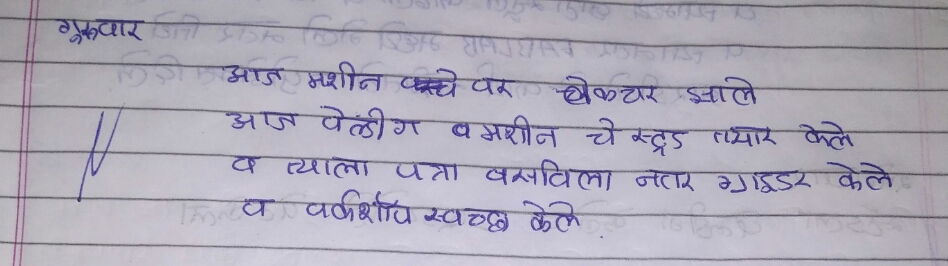 गुरूवार
आज मशीन वर लेकचर झाले
आज वेल्डींग व मशीन चे स्टॅड तयार केले
व त्याला पत्रा बसविला नतर ग्राइडर केले
व वर्कशॉप स्वच्छ केले.